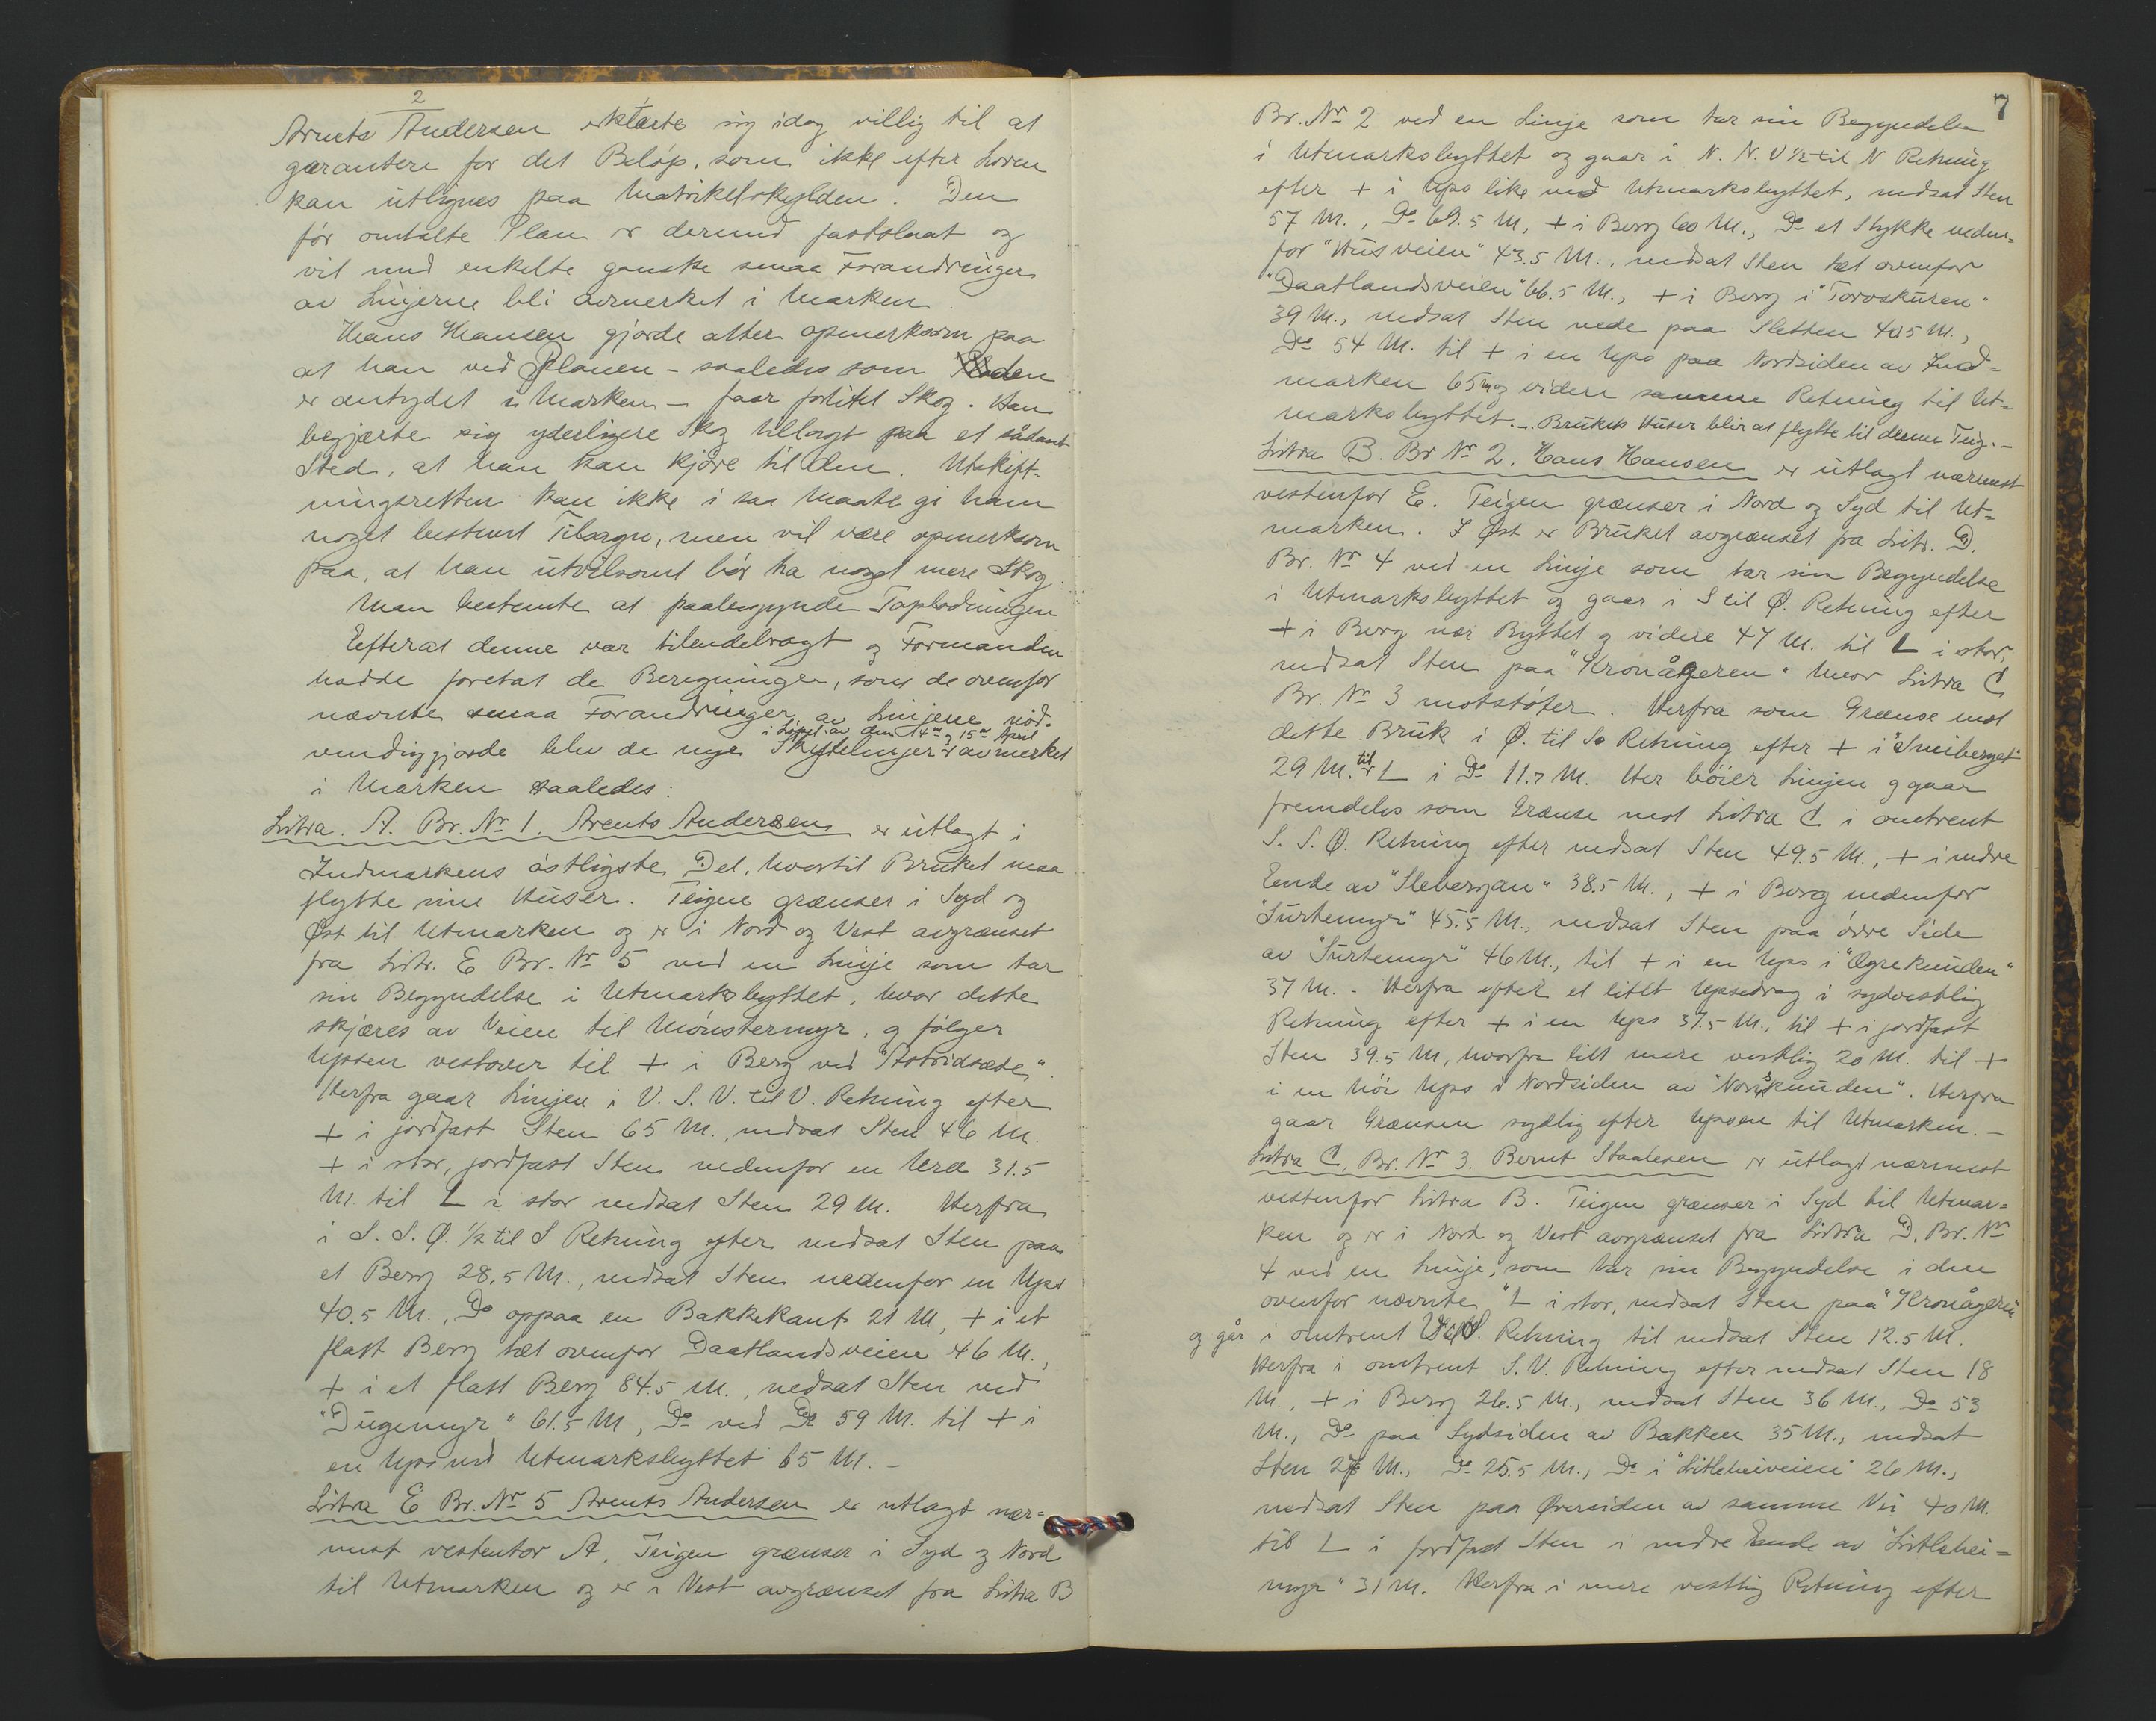 2 1
Arents Andersen erklærte sig idag villig til at
garantere for det Beløp, som ikke efter Loven
kan utlignes paa Matrikelskylden. Den
før omtalte Plan er dermed fastslaat og
vil med enkelte ganske smaa Forandringer
av Linjerne bli avmerket i Marken.
Hans Hansen gjorde atter opmerksom paa
at han ved Planen - saaledes som den
er antydet i Marken - faar forlitet Skog. Han
begjærte sig yderligere Skog tillagt paa et sådant
Sted, at han kan kjøre til den. Utskift-
ningsretten kan ikke i saa Maate gi ham
noget bestemt Tilsagn, men vil være opmerksom
paa, at han utvilsomt bør ha noget mere Skog.
Man bestemte at paabegynde Taplodningen
Efterat denne var tilendebragt og Formanden
hadde foretat de Beregninger, som de ovenfor
nævnte smaa Forandringer av Linjene nød-
i Løpet av den 14de og 15de April
vendiggjorde blev de nye Skiftelinjer avmerket
i Marken saaledes:
Litra. A. Br. Nr 1. Arents Andersen er utlagt i
Indmarkens østligste Del, hvortil Bruket maa
flytte sine Huser. Teigen grænser i Syd og
Øst til Utmarken og er i Nord og Vest avgrænset
fra Litr. E Br. Nr 5 ved en Linje som tar
sin Begyndelse i Utmarksbyttet, hvor dette
skjæres av Veien til Mønstermyr, og følger
Upsen vestover til + i Berg ved "Astridsæde".
Herfra gaar Linjen i V. S. V. til V. Retning efter
+ i jordfast Sten 65 M., nedsat Sten 46 M.
+ i stor, jordfast Sten nedenfor en Urd 31.5
M. til L i stor nedsat Sten 29 M. Herfra
i S. S. Ø. 1/2 til S Retning efter nedsat Sten paa
et Berg 28.5 M., nedsat Sten nedenfor en Ups
40.5 M., Do oppaa en Bakkekant 21 M, + i et
flatt Berg tæt ovenfor Daatlandsveien 46 M.,
+ i et flatt Berg 84.5 M., nedsat Sten ved
"Dugemyr" 61.5 M, Do ved Do 59 M. til + i
en Ups ved Utmarksbyttet 65 M. -
Litra E Br. Nr 5 Arents Andersen er utlagt nær-
mest vestenfor A. Teigen grænser i Syd og Nord
til Utmarken og er i Vest avgrænset fra Litra B
7
Br. Nr 2 ved en Linje som tar sin Begyndelse
i Utmarksbyttet og gaar i N. N. V 1/2 til N Retning
efter + i Ups like ved Utmarksbyttet, nedsat Sten
57 M., Do 69.5 M, + i Berg 60 M., Do et Stykke neden-
for "Husveien" 43.5 M., nedsat Sten tæt ovenfor
"Daatlandsveien" 66.5 M., + i Berg i "Torvskuren"
39 M., nedsat Sten nede paa Sletten M.,
Do 54 M. til + i en Ups paa Nordsiden av Ind-
marken 65 m og videre samme Retning til Ut-
marksbyttet. - Brukets Huser blir at flytte til denne Teig. -
Litra B. Br Nr 2. Hans Hansen er utlagt nærmest
vestenfor E. Teigen grænser i Nord og Syd til Ut-
marken. I Øst er Bruket avgrænset fra Litr. D.
Br. Nr 4 ved en Linje som tar sin Begyndelse
i Utmarksbyttet og gaar i S til Ø. Retning efter
+ i Berg nær Byttet og videre 47 M. til L i stor,
nedsat Sten paa "Kronågeren" hvor Litra C
Br. Nr 3 motstøter. Herfra som Grænse mot
dette Bruk i Ø. til S Retning efter + i "Sneiberget"
29 M. til L i Do 11.7 M. Her bøier Linjen og gaar
fremdeles som Grænse mot Litra C i omtrent
S. S. Ø. Retning efter nedsat Sten 49.5 M., + i nedre
Ende av "Slebergan" 38.5 M., + i Berg nedenfor
"Surtemyr" 45.5 M., nedsat Sten paa øvre Side
av "Surtemyr" 46 M., til + i en Ups i "Øgrekunden"
37 M. - Herfra efter et litet Upsedrag i sydvestlig
Retning efter + i en Ups 37.5 M., til + i jordfast
Sten 39.5 M, hvorfra litt mere vestlig 20 M. til +
i en høi Ups i Nordsiden av . Herfra
gaar Grænsen sydlig efter Upsen til Utmarken. -
Litra C. Br. Nr 3. Bernt Staalesen er utlagt nærmest
vestenfor Litra B. Teigen grænser i Syd til Utmar-
ken og er i Nord og Vest avgrænset fra Litra D. Br. Nr
4 ved en Linje, som tar sin Begyndelse i den
ovenfor nævnte L i stor, nedsat Sten paa "Kronågeren"
og går i omtrent Retning til nedsat Sten 12.5 M.
Herfra i omtrent S. V. Retning efter nedsat Sten 18
M., + i Berg 26.5 M., nedsat Sten 36 M., Do 53
M., Do paa Sydsiden av Bækken 35 M., nedsat
Sten M., Do 25.5 M., Do i "Litleheiveien" 26 M.,
nedsat Sten paa Øversiden av samme Vei 40 M.
til L i jordfast Sten i nedre Ende av "Litlehei-
myr" 31 M. Herfra i mere vestlig Retning efter